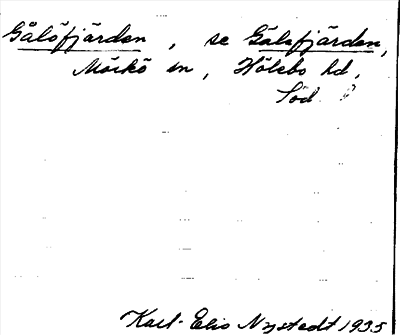 Gålöfjärden, se Gälsfjärden,
Mörkö sn, Hölebo hd,
Söd.
Karl-Elis Nystedt 1935